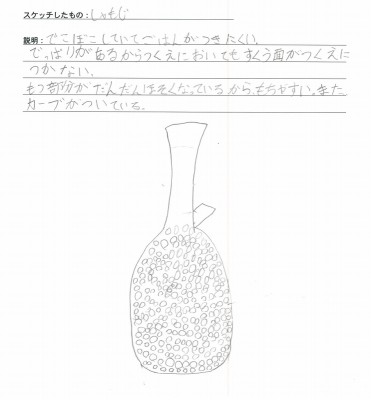 スケッチしたもの：しゃもじ
説明：でこぼこしていてごはんがつきにくい。
でっぱりがあるからつくえにおいてもすくう面がつくえに
つかない。
もつ部分がだんだんほそくなっているから、もちやすい。また
カーブがついている。